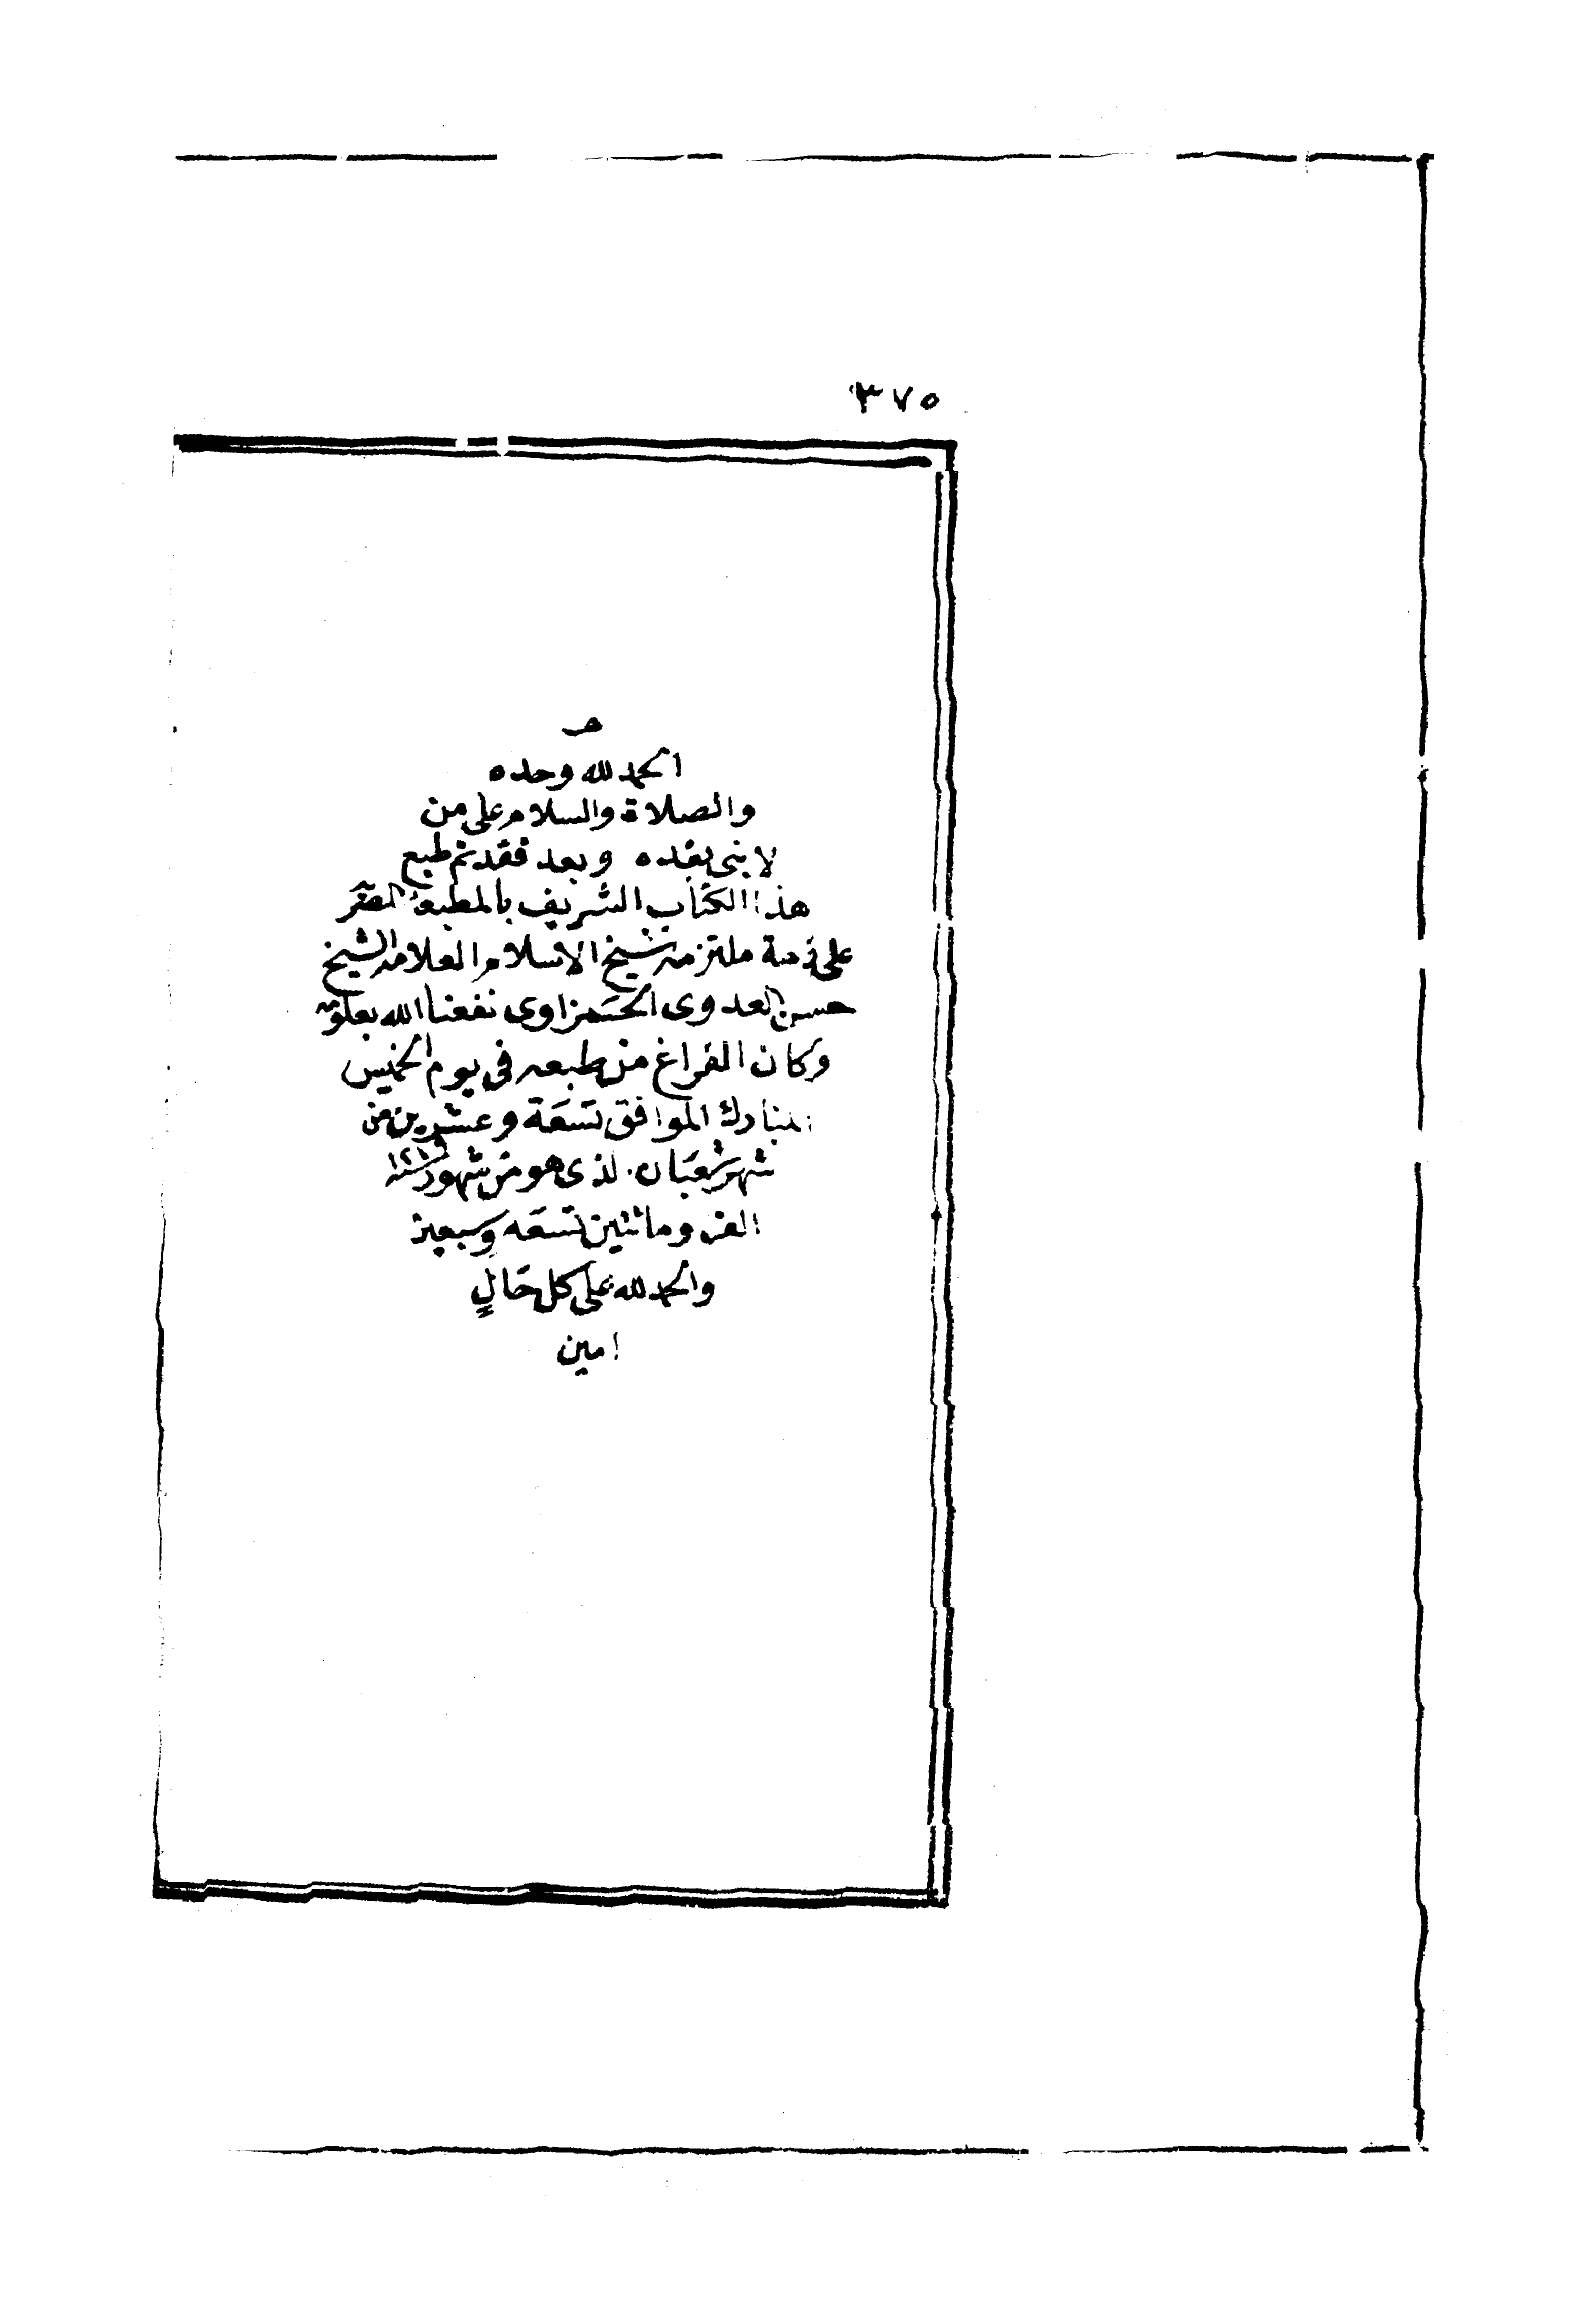 ٣٧٥
الحمد لله وحده
والصلاة والسلام على من
لا نبي بعده وبعد فقد تم طبع
هذا الكتاب الشريف بالمطبعة
على ذمة ملتزمه شيخ الاسلام العلامه الشيخ
حسن العدوى الحمزاوى نفعنا الله بعلومه
وكان الفراغ من طبعه فى يوم الخميس
المبارك الموافق تسعة وعشرين من
شهر شعبان الذى هو من شهور سنة
الف ومائتين تسعه وسبعين
والحمد لله على كل حال
امين